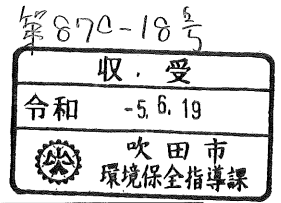 第870-18号
収.受
令和 -5.6.19
吹田市
環境保全指導課